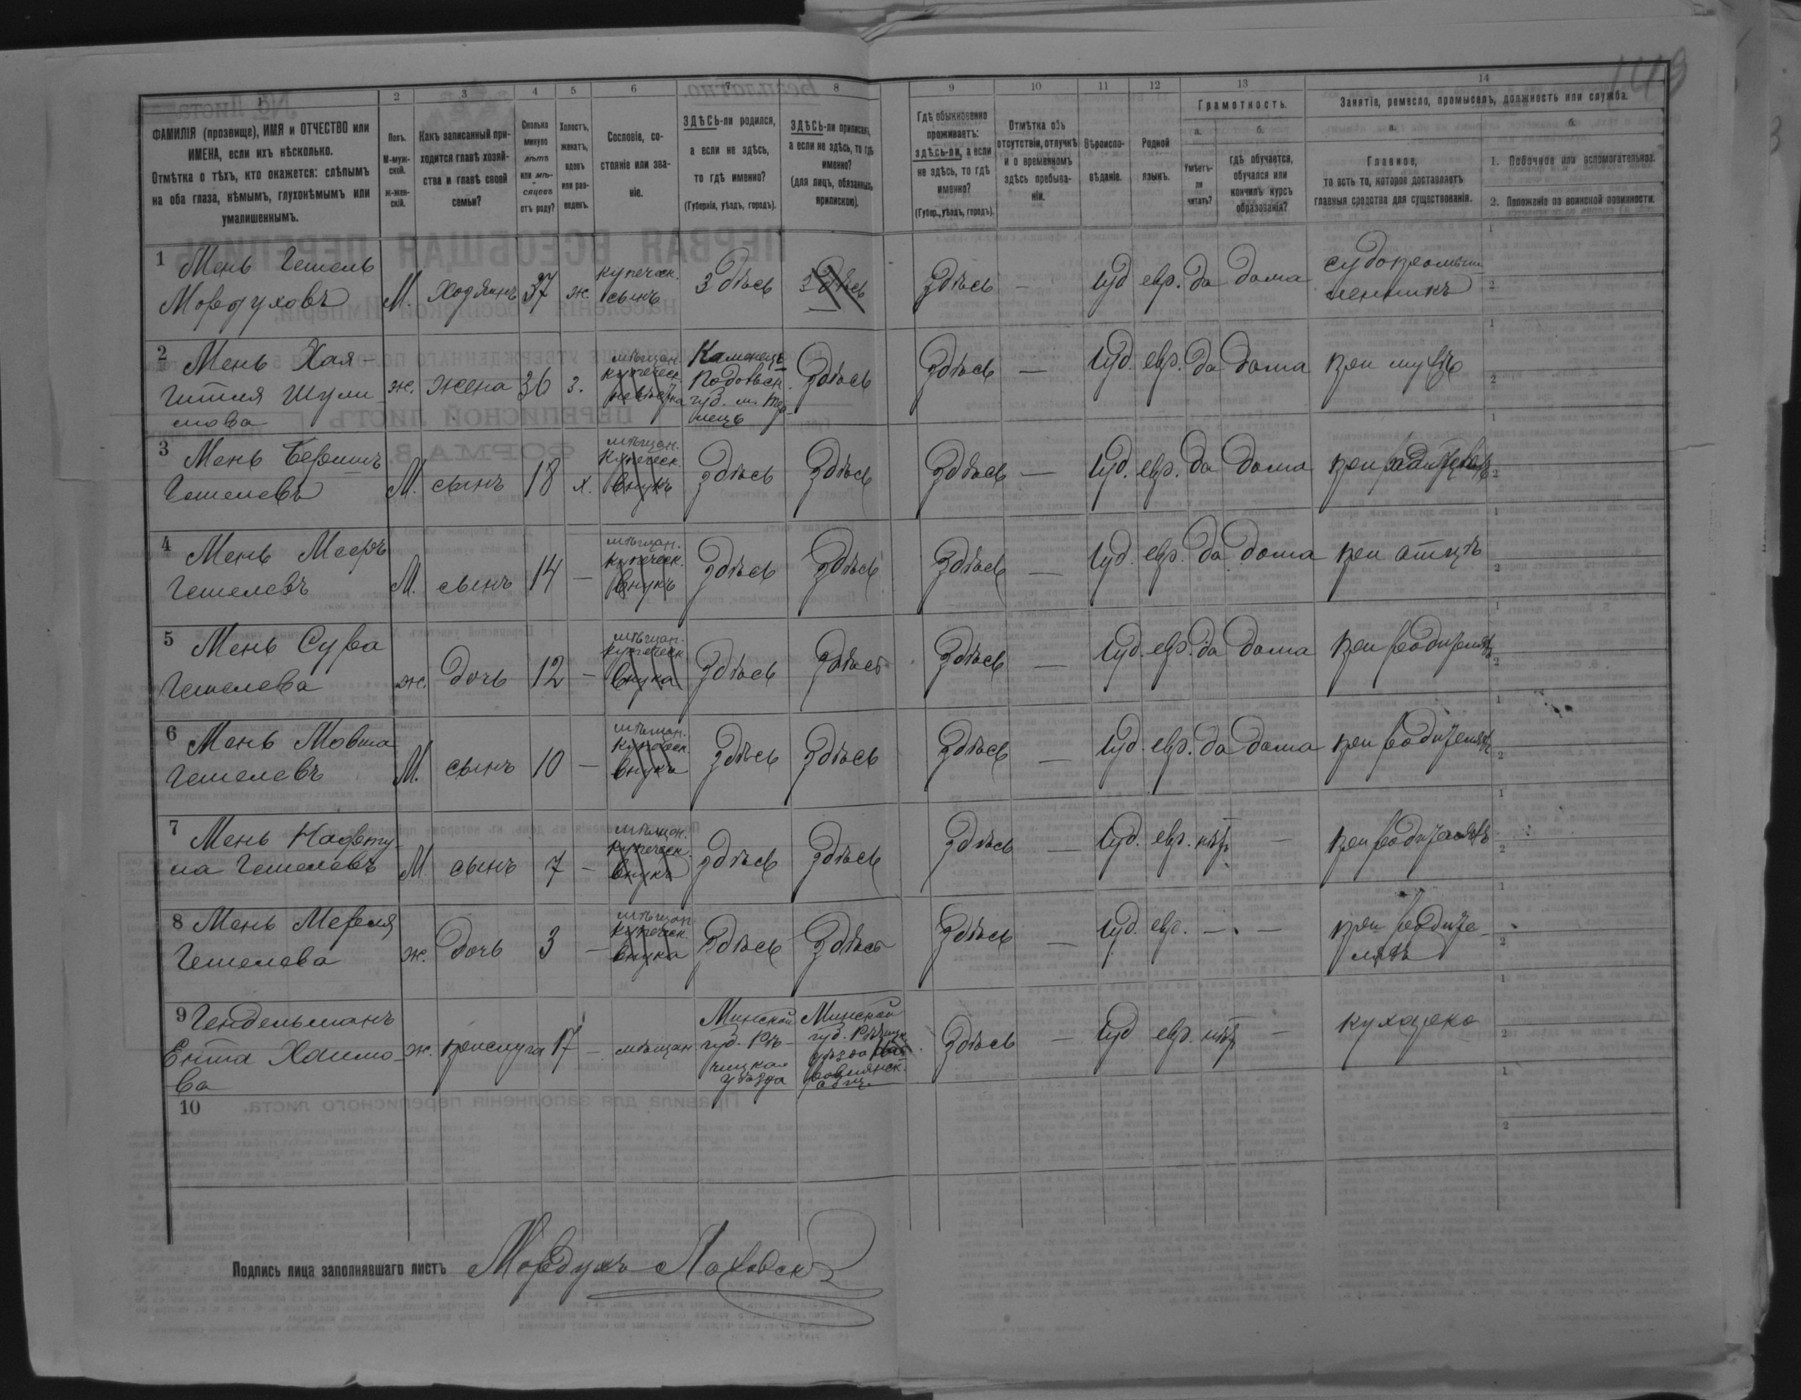 149
1 2 3 4 5 6 7 8 9 10 11 12 13 14
ФАМИЛІЯ (прозвище), ИМЯ и ОТЧЕСТВО или
ИМЕНА, если ихъ нѣсколько.
Отмѣтка о тѣхъ, кто окажется: слѣпымъ
на оба глаза, нѣмымъ, глухонѣмымъ или
умалишеннымъ.
Полъ.
М-муж-
ской.
Ж-жен-
скій.
Какъ записанный при-
ходится главѣ хозяй-
ства и главѣ своей
семьи?
Сколько
минуло
лѣтъ
или мѣ-
сяцевъ
отъ роду?
Холостъ,
женатъ,
вдовъ
или раз-
веденъ.
Сословіе, со-
стояніе или зва-
ніе.
ЗДѢСЬ-ли родился,
а если не здѣсь,
то гдѣ именно?
(Губернія, уѣздъ, городъ).
ЗДѢСЬ-ли приписанъ,
а если не здѣсь, то гдѣ
именно?
(для лицъ, обязанныхъ
припискою).
Гдѣ обыкновенно
проживаетъ:
здѣсь-ли, а если
не здѣсь, то гдѣ
именно?
(Губер., уѣздъ, городъ).
Отмѣтка объ
отсутствіи, отлучкѣ
и о временномъ
здѣсь пребыва-
ніи.
Вѣроиспо-
вѣданіе.
Родной
языкъ.
Грамотность.
а.
Умѣетъ-
ли
читать?
б.
гдѣ обучается,
обучался или
кончилъ курсъ
образованія?
Занятіе, ремесло, промыселъ, должность или служба.
а.
Главное,
то есть то, которое доставляетъ
главныя средства для существованія.
б.
1. Побочное или вспомогательное.
2. Положеніе по воинской повинности.
1 Мень Гешель
Мордуховъ
М. хозяинъ 37 ж. купеческ.
сынъ
здѣсь здѣсь здѣсь — іуд евр. да дома судопромыш
ленникъ
2 Мень Хая-
Гитля Шули
мова
ж. жена 36 з. мѣщан.
купеческ.
Каменецъ
Подольск.
губ.
здѣсь здѣсь — іуд. евр. да дома при мужѣ
3 Мень Беришъ
Гешелевъ
М. сынъ 18 х. мѣщан.
купеческ.
внукъ
здѣсь здѣсь здѣсь — іуд. евр. да дома при
4 Мень Мееръ
Гешелевъ
М. сынъ 14 — мѣщан.
купеческ.
внукъ
здѣсь здѣсь здѣсь — іуд. евр. да дома при отцѣ
5 Мень Сура
Гешелева
ж. дочь 12 — мѣщан.
купеческ.
внука
здѣсь здѣсь здѣсь — іуд. евр. да дома при родителяхъ
6 Мень Мовша
Гешелевъ
М. сынъ 10 — мѣщан.
купеческ.
внука
здѣсь здѣсь здѣсь — іуд. евр. да дома при родителяхъ
7 Мень Нафту
ла Гешелевъ
М сынъ 7 — мѣщан.
купеческ.
внукъ
здѣсь здѣсь здѣсь — іуд. евр. нѣтъ — при родителяхъ
8 Мень Мерля
Гешелева
ж. дочь 3 — мѣщан.
купеческ.
внука
здѣсь здѣсь здѣсь — іуд. евр. — — при родите-
ляхъ
9 Гендельманъ
Ента Хаимо-
ва
ж. прислуга 17 — мѣщан
Минской
губ. Рѣ-
чицкаго
уѣзда
Минской
губ. Рѣчицк.
уѣзда
здѣсь — іуд евр. нѣтъ — кухарка
10
Подпись лица заполнявшаго листъ Мордухъ